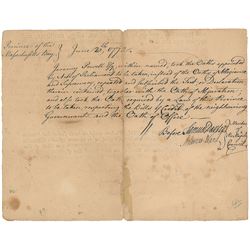 Province of the
Massachusetts Bay
June 2th 1772.
Jeremy Powell Esq. within named, took the Oaths appointed
by Act of Parliament to be taken, instead of the Oaths of Allegiance
and Supremacy, repeated and subscribed the Test or Declaration
therein contained together with the Oath of Abjuration;
and also took the Oath required by a Law of this Province
to be taken, respecting the Bills of Credit of the neighbouring
Governments and the Oath of Office.
Before
Artemas Ward